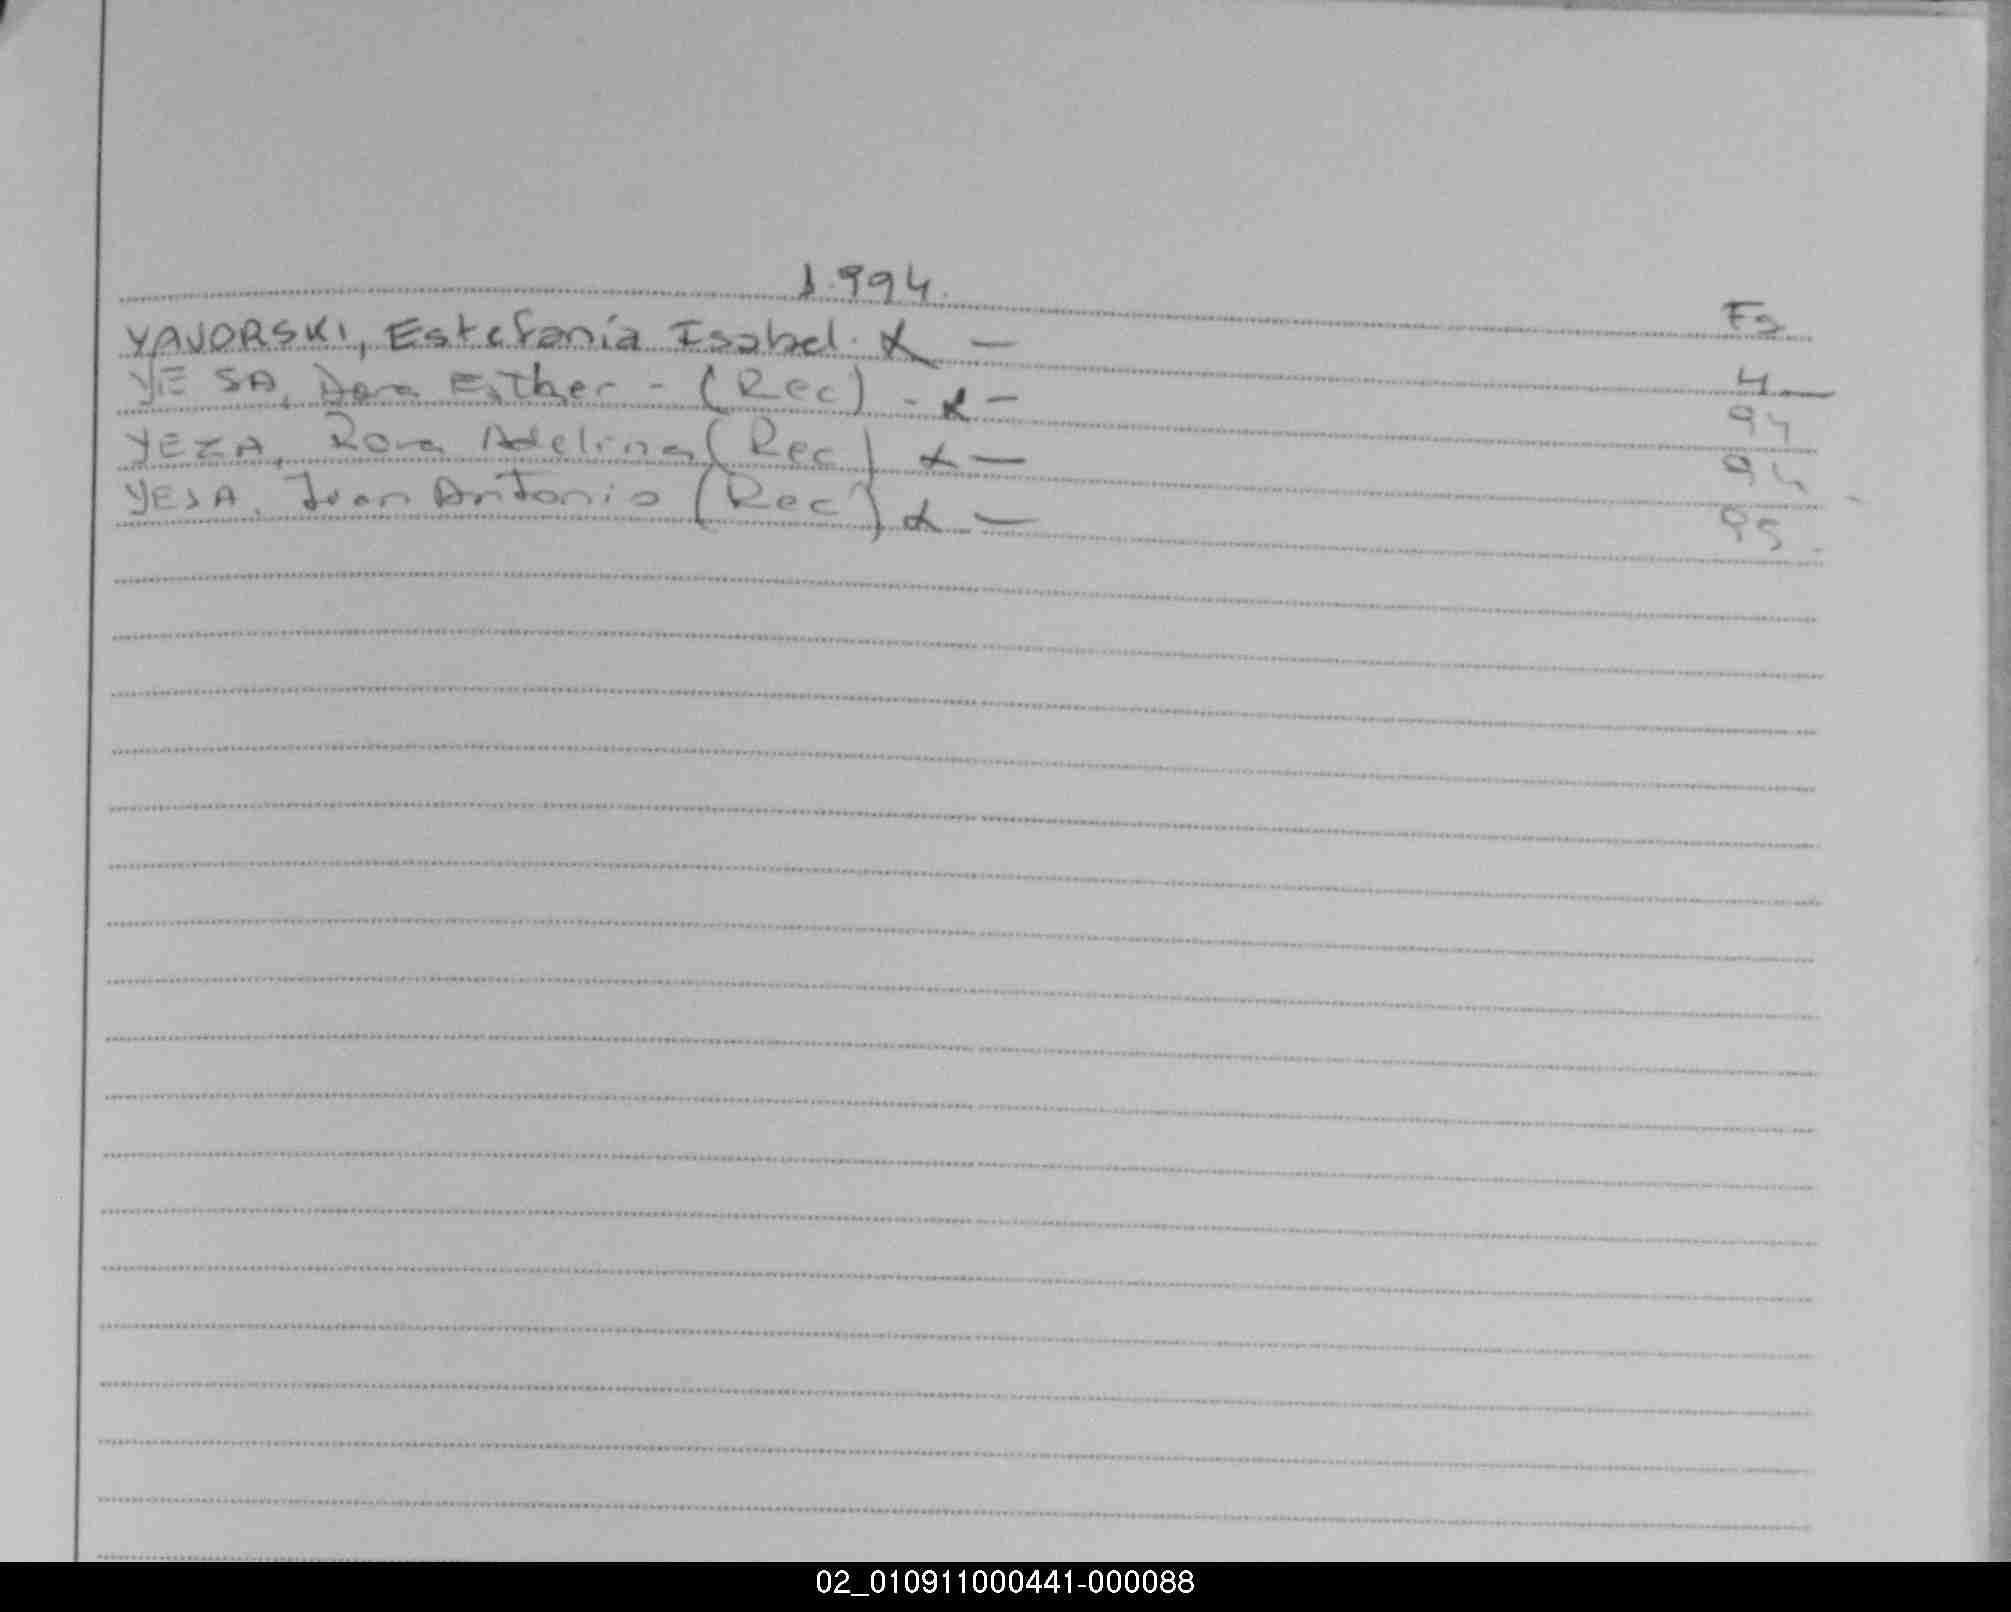 1.994.
Fs
YAVORSKI, Estefanía Isabel. α — 4
YESA, Dora Esther - (Rec) . α — 94
YEZA, Rosa Adelina (Rec) α — 94
YESA, Juan Antonio (Rec) α — 95
02_010911000441-000088